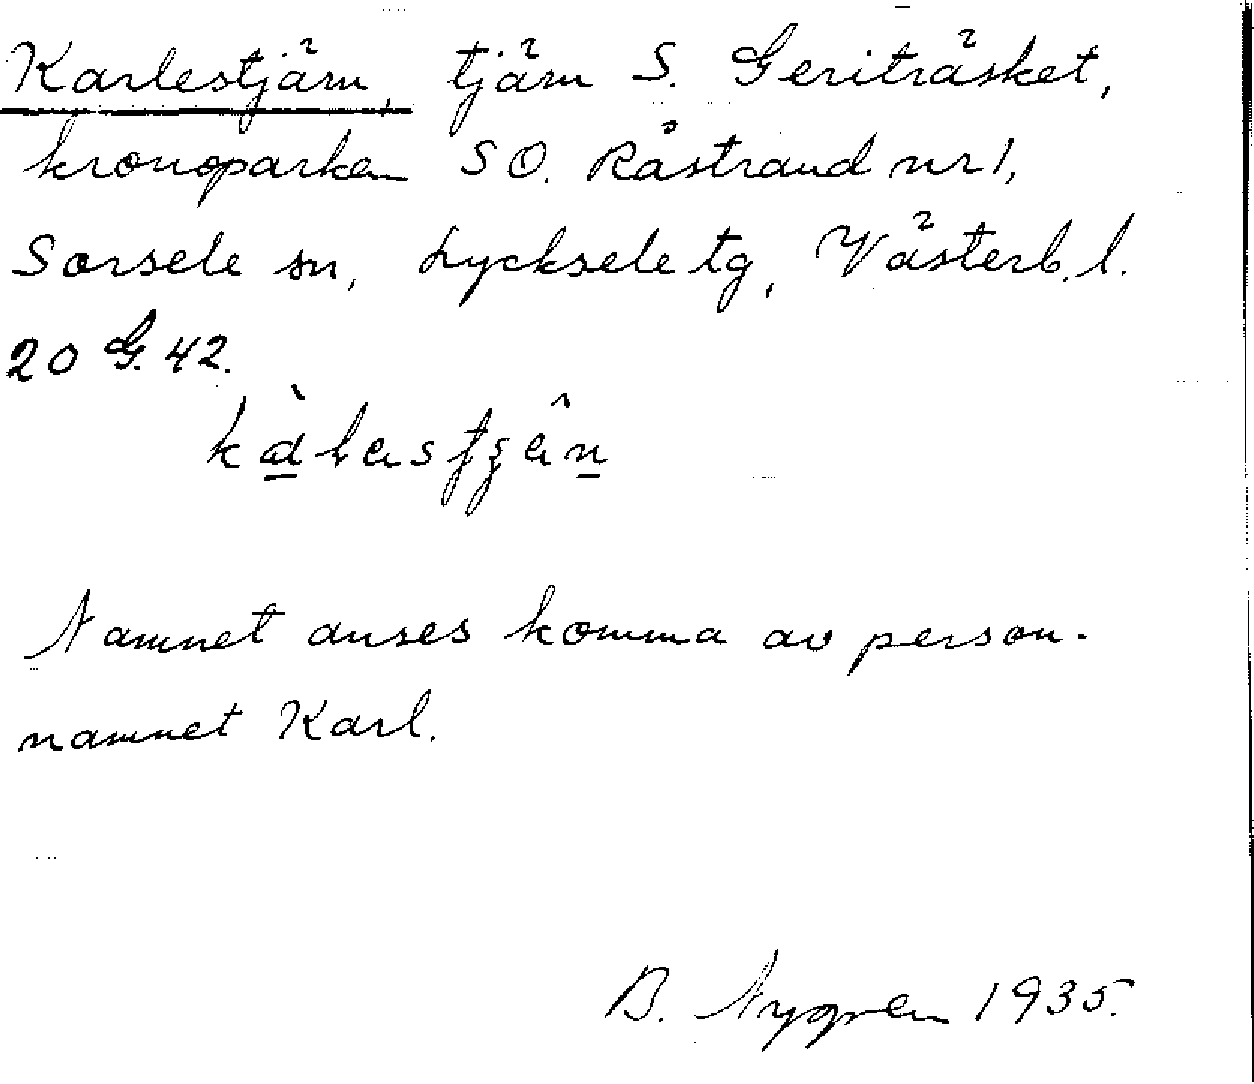 Karlestjärn, tjärn S. Geriträsket,
kronoparken SO. Råstrand nr 1,
Sorsele sn, Lycksele tg, Västerb. l.
20 G. 42.
Namnet anses komma av person-
namnet Karl.
B. Nygren 1935.